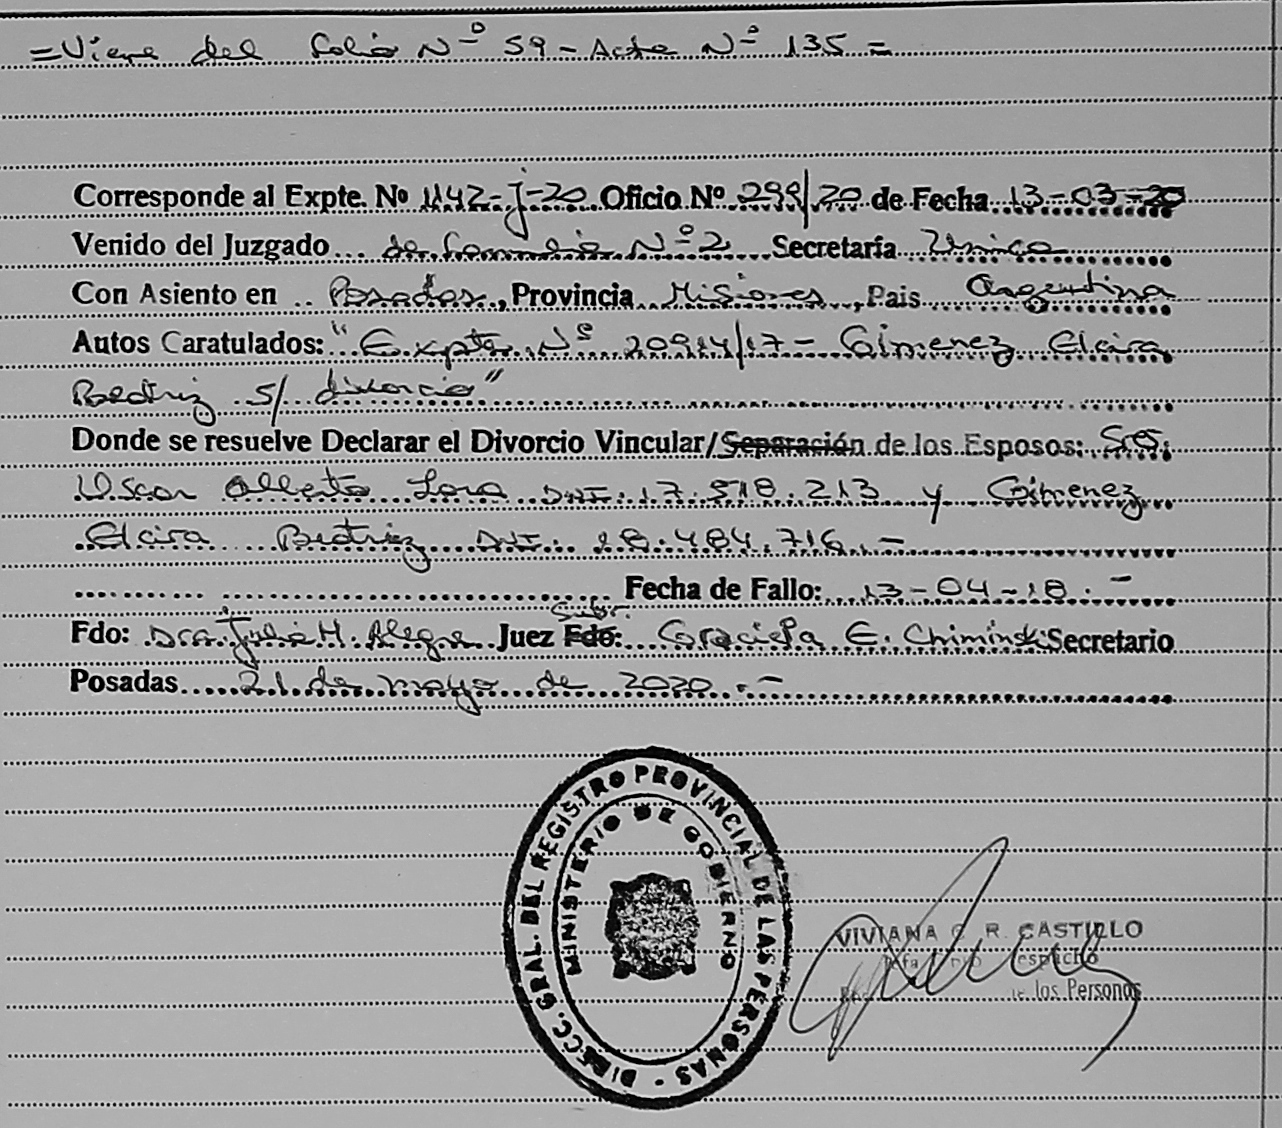 =Viene del folio Nº 59 - Acta Nº 135 =
Corresponde al Expte. Nº 1142-J-20 Oficio Nº 299/20 de Fecha 13-03-20
Venido del Juzgado de Familia Nº 2 Secretaría Unica
Con Asiento en Posadas, Provincia Misiones, Pais Argentina
Autos Caratulados: "Expte. Nº 20914/17 - Gimenez Elcira
Beatriz s/ divorcio"
Donde se resuelve Declarar el Divorcio Vincular/Separación de los Esposos: Sres.
Oscar Alberto Lora DNI: 17.518.213 y Gimenez
Elcira Beatriz DNI: 18.484.716.-
Fecha de Fallo: 13-04-18.-
Fdo: Dra. Julia H. Alegre Juez Fdo: Graciela E. Chiminski Secretario
Posadas 21 de mayo de 2020.-
DIRECC. GRAL. DEL REGISTRO PROVINCIAL DE LAS PERSONAS -
MINISTERIO DE GOBIERNO
VIVIANA R. CASTILLO
los Personas